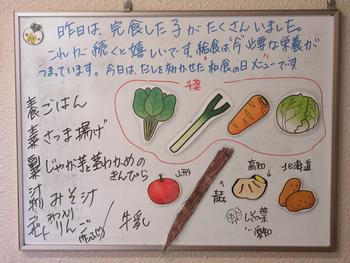 昨日は、完食した子がたくさんいました。
これが続くと嬉しいです。給食は"今"必要な栄養が
つまっています。今日は、だしを効かせた和食の日メニューです
千葉
ごはん
さつま揚げ
じゃが芋と茎わかめの
きんぴら
みそ汁
みつ入り
りんご
牛乳
山形
高知
北海道
しその葉
愛知